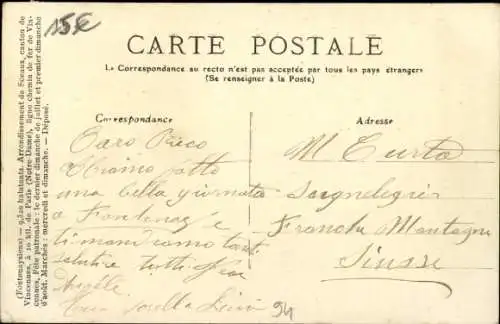 15€
CARTE POSTALE
La Correspondance au recto n'est pas acceptée par tous les pays étrangers
(Se renseigner à la Poste)
(Fontenaysiens) — 9.320 habitants. Arrondissement de Sceaux, canton de
Vincennes, à 10 kil. de Paris (Notre-Dame), ligne chemin de fer de Vin-
cennes. Fête patronale : le dernier dimanche de juillet et premier dimanche
d'août. Marchés : mercredi et dimanche. — Déposé.
Correspondance
Caro
Abbiamo fatto
una bella giornata
a Fontenay e
ti mandiamo tanti
salutire tutti
Angele
Adresse
M Curta
Saignelegier
Franche Montagne
Suisse
94